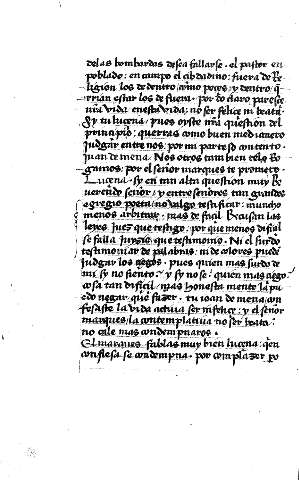 delas bombardas desea fallarse. el pastor en
poblado: en campo el cibdadino: fuera de Re
ligion los de dentro como peçes: y dentro q
rrian estar los de fuera. por do claro paresçe
nra vida en esta vida: no ser feliçe ni beata.
Sy tu luçena, pues oyste nra question del
prinçipio: querras como buen medianero
judgar entre nos: por mi parte so contento.
juan de mena. Nos otros tambien telo Ro
gamos: por el señor marques te prometo.
Luçena. Sy en tan alta question muy Re
uerendo señor, y entre señores tan grandes
egregio poeta no valgo testificar: mucho
menos arbitrar. mas de facil Escusan las
leyes juez que testigo: por que menos difiçil
se falla juyzio que testimonio. Ni el surdo
testimoniar de palabras, ni de colores puede
judgar los çiegos. pues quien mas surdo de
mi sy no siento: y sy no se: quien mas çiego.
cosa tan difiçil, mas honesta mente la pu
edo negar que fazer. tu ioan de mena con
fesaste la vida activa ser infeliçe: y el señor
marques, la contemplativa no ser beata:
no cale mas condempnaros.
El marques. fablas muy bien luçena: quien
confiesa se condempna. por complazer po